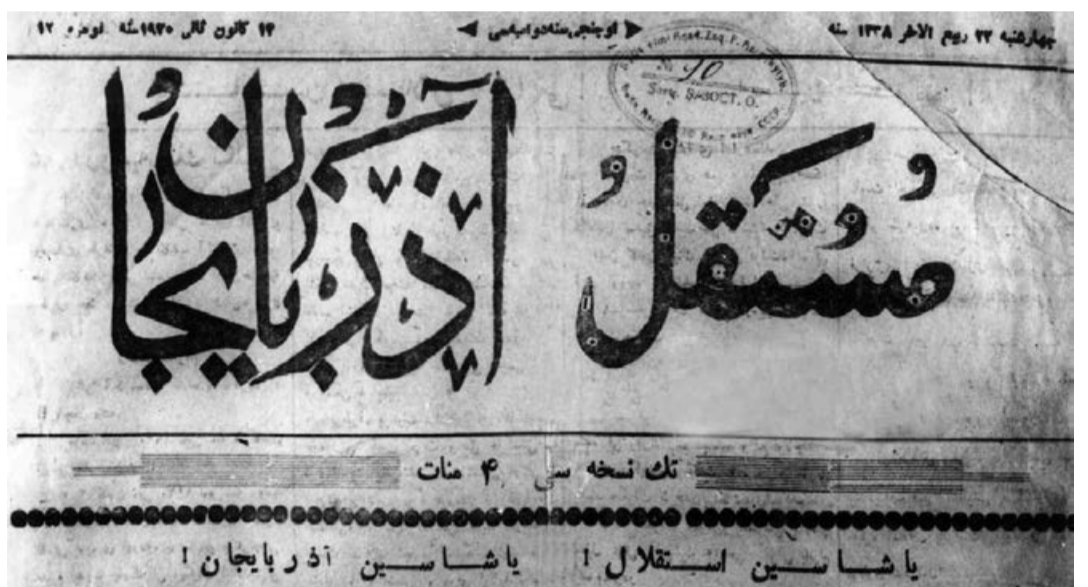 چهارشنبه ۲۲ ربیع الاخر ۱۳۳۸ سنه اوچنجی سنه ۱۴ کانون ثانی ۱۹۲۰ سنه نومره ۱۲
مستقل آذربایجان
تك نسخه سی ۴ منات
یاشاسین استقلال! یاشاسین آذربایجان!